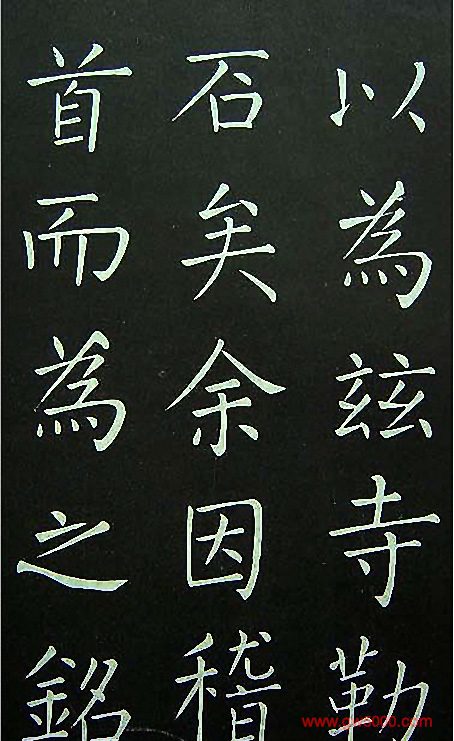 以為玆寺勒
石矣余因稽
首而為之銘
www.gw8000.com